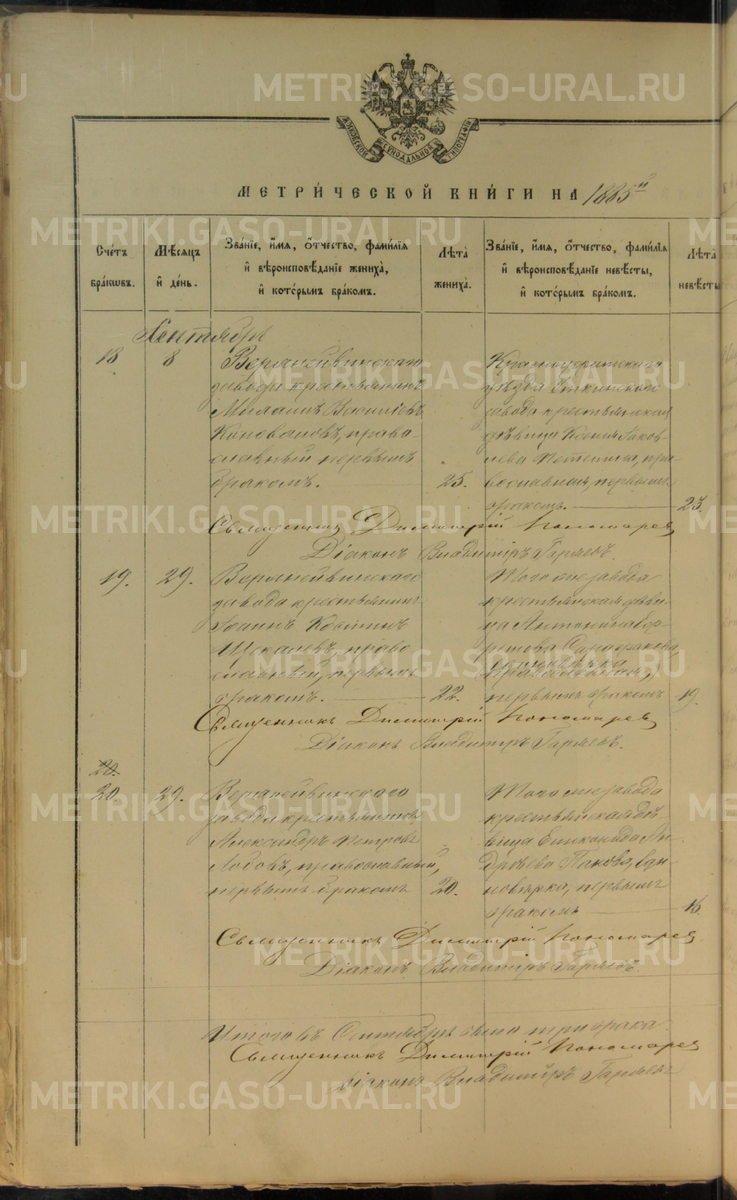 МЕТРИЧЕСКОЙ КНИГИ НА 1885й
Счетъ браковъ.
Мѣсяцъ и день.
Званіе, имя, отчество, фамилія и вѣроисповѣданіе жениха, и которымъ бракомъ.
Лѣта жениха.
Званіе, имя, отчество, фамилія и вѣроисповѣданіе невѣсты, и которымъ бракомъ.
Лѣта невѣсты
Сентябрь
18
8
Верхнейвинскаго
завода крестьянинъ
Василіевъ
Коноваловъ, право
славный первымъ
бракомъ.
25.
Красноуфимскаго
уѣзда Уткинскаго
завода крестьянская
дѣвица Ксенія Яков
лева пра
вославная, первымъ
бракомъ.
23.
Священникъ Димитрій Пономарев
Діаконъ Владиміръ Гаряевъ.
19.
29.
Верхнейвинскаго
завода крестьянинъ
Іоаннъ
право
славный, первымъ
бракомъ.
22.
Того же завода
крестьянская дѣви
ца Антонина
Сарафанова,
первымъ бракомъ
19.
Священникъ Димитрій Пономарев
Діаконъ Владиміръ Гаряевъ.
20.
20
29.
Верхнейвинскаго
завода крестьянинъ
Александръ Петровъ
православный,
первымъ бракомъ
20.
Того же завода
крестьянская дѣ
вица
Панова, еди
новѣрка, первымъ
бракомъ
Священникъ Димитрій Пономарев
Діаконъ Владиміръ Гаряевъ.
Итого въ Сентябрѣ было три брака.
Священникъ Димитрій Пономарев
Діаконъ Владиміръ Гаряевъ
METRIKI.GASO-URAL.RU